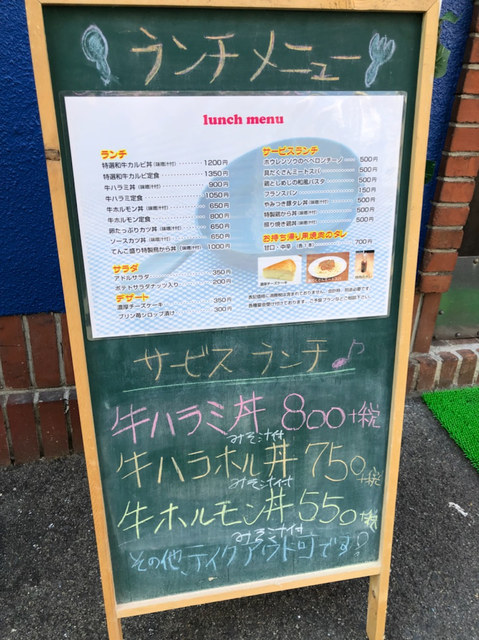 ランチメニュー
lunch menu
ランチ
特選和牛カルビ丼(味噌汁付) 1200円
特選和牛カルビ定食 1350円
牛ハラミ丼(味噌汁付) 900円
牛ハラミ定食 1050円
牛ホルモン丼(味噌汁付) 650円
牛ホルモン定食 800円
卵たっぷりカツ丼(味噌汁付) 650円
ソースカツ丼(味噌汁付) 650円
てんこ盛り特製鶏から丼(味噌汁付) 1000円
サラダ
アドルサラダ 350円
ポテトサラダナッツ入り 200円
デザート
濃厚チーズケーキ 350円
プリン苺シロップ漬け 300円
サービスランチ
ホウレンソウのペペロンチーノ 500円
具だくさんミートスパ 500円
鶏としめじの和風パスタ 500円
フランスパン 150円
やみつき豚タレ丼(味噌汁付) 500円
特製鶏から丼(味噌汁付) 500円
照り焼き鶏丼(味噌汁付) 500円
お持ち帰り用焼肉のタレ
甘口・中辛 700円
濃厚チーズケーキ
サービス ランチ♪
牛ハラミ丼 800+税
みそ汁付
牛ハラホル丼 750+税
みそ汁付
牛ホルモン丼 550+税
みそ汁付
その他、テイクアウト可です!